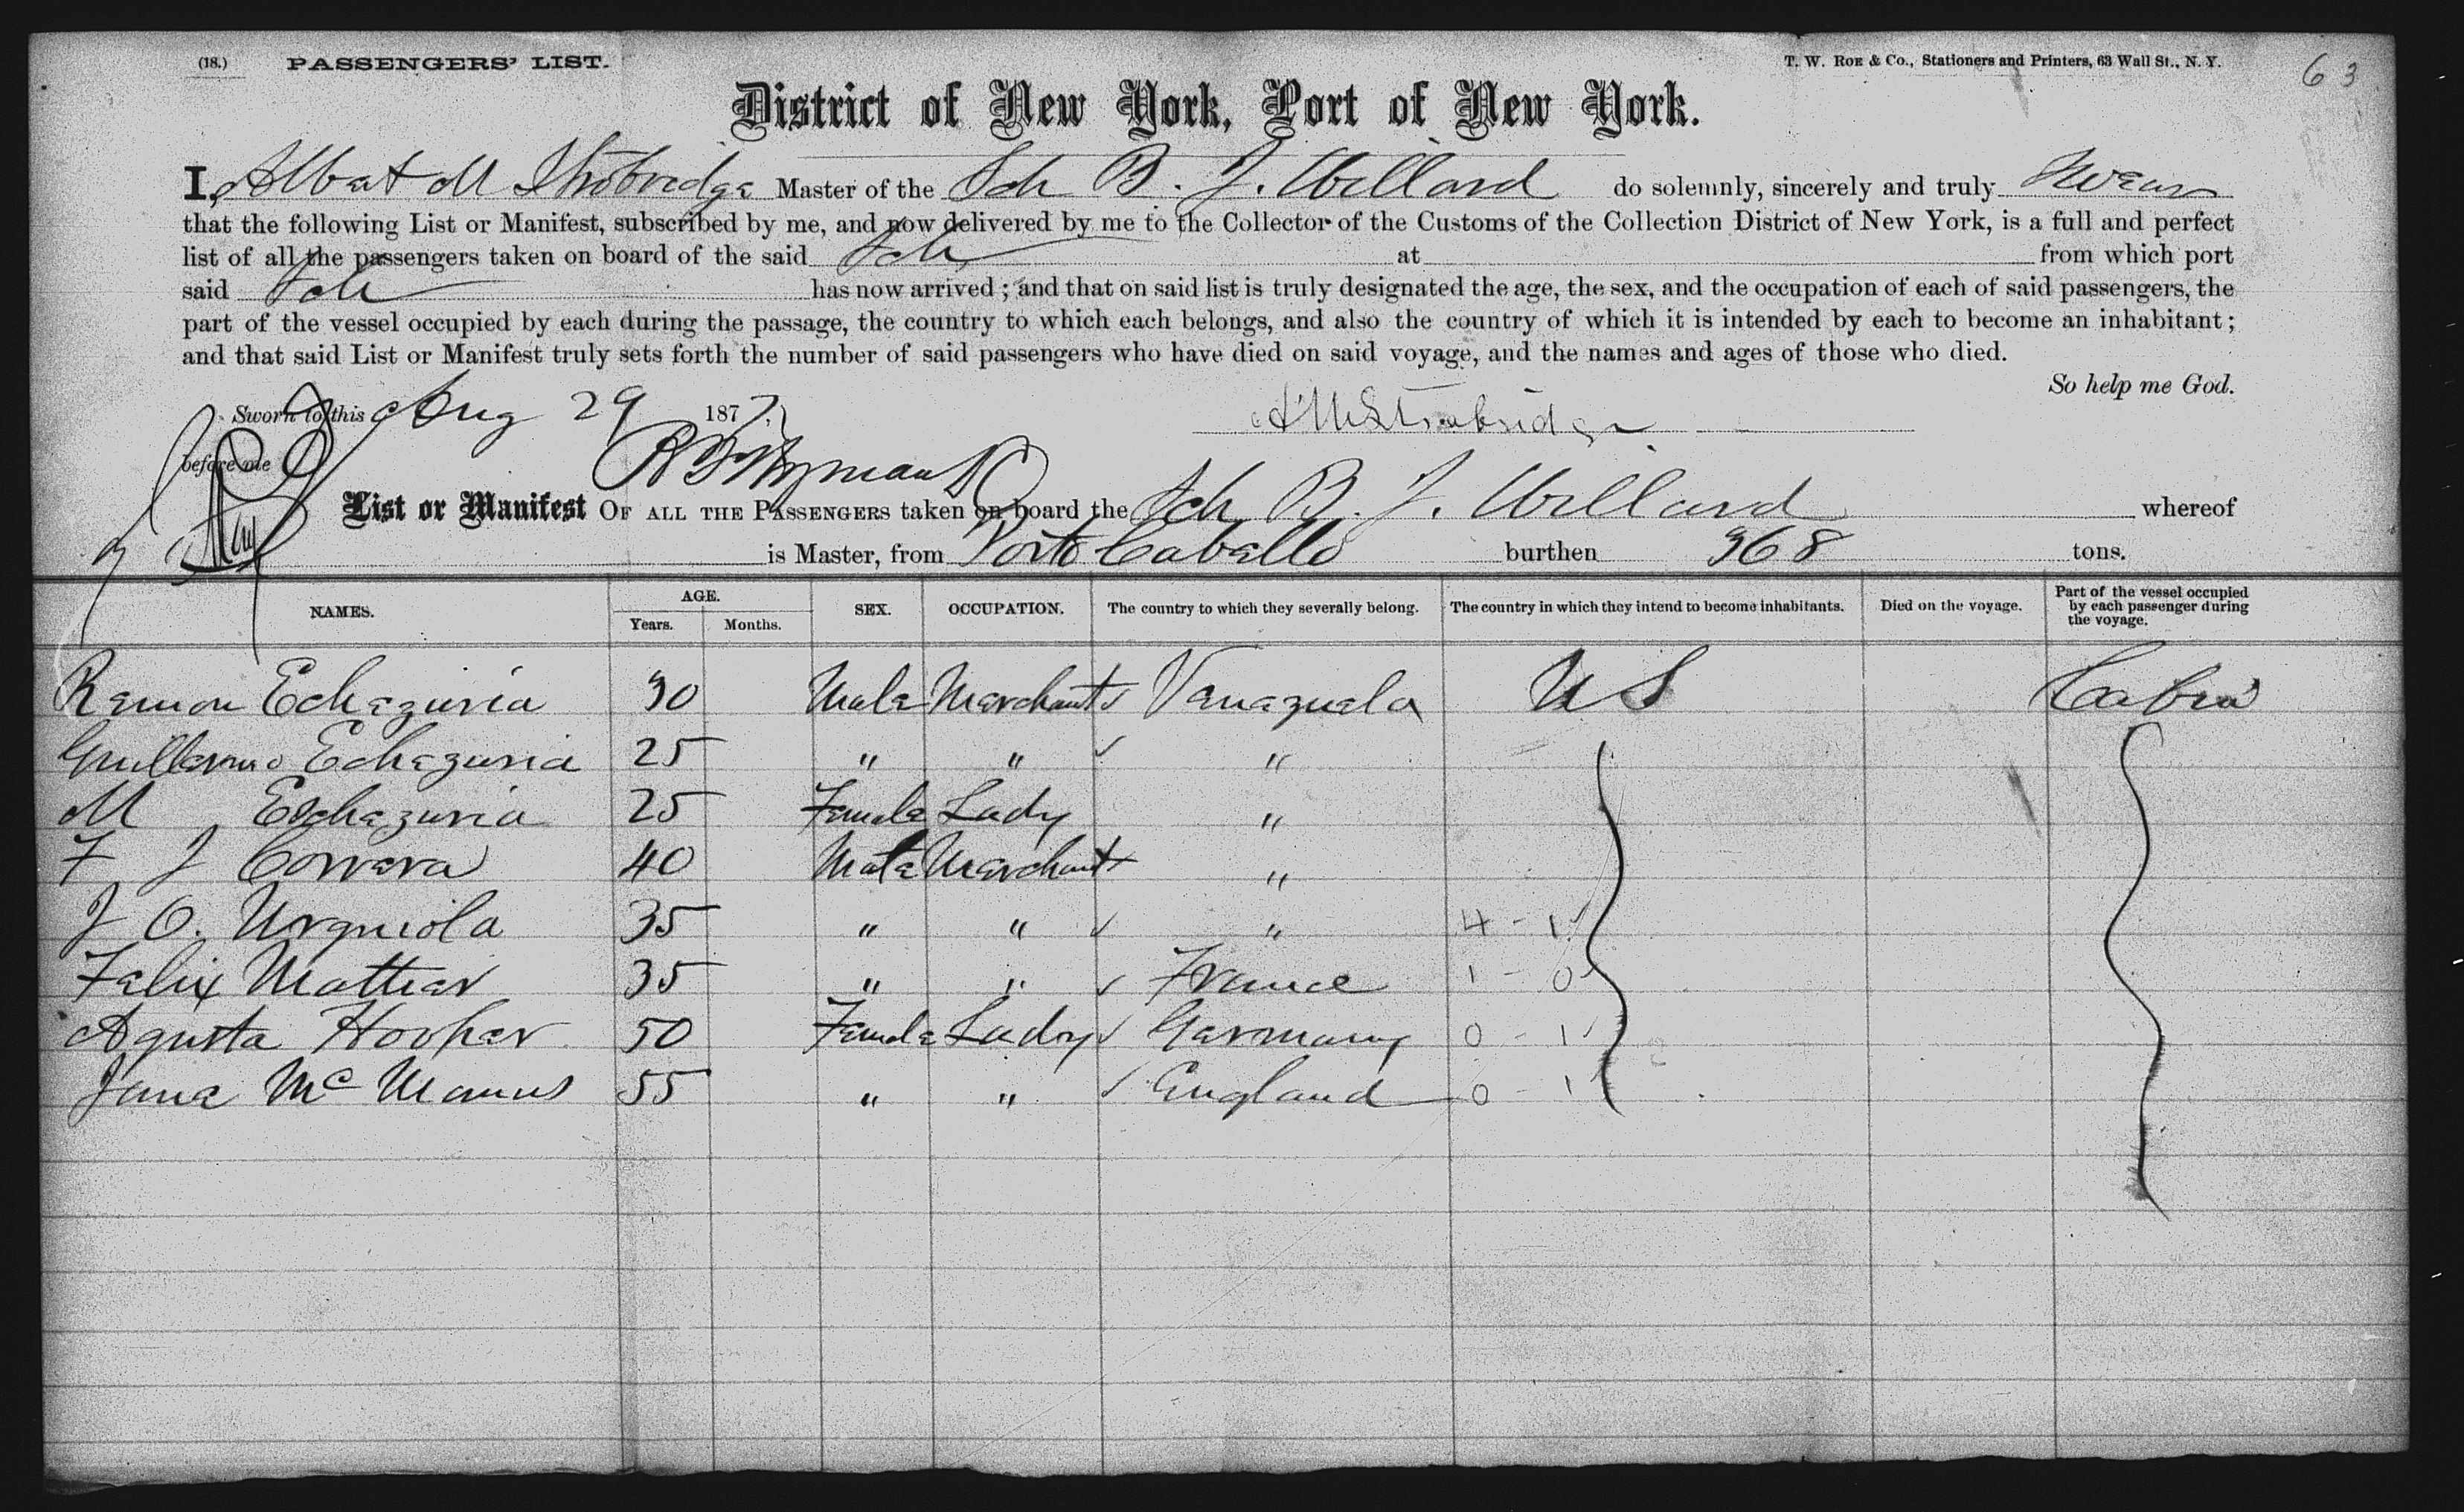 (18.) PASSENGERS' LIST. T. W. ROE & Co., Stationers and Printers, 63 Wall St., N. Y. 63
District of New York, Port of New York.
I, Albert M Strobridge Master of the Sch B. J. Willard do solemnly, sincerely and truly Swear
that the following List or Manifest, subscribed by me, and now delivered by me to the Collector of the Customs of the Collection District of New York, is a full and perfect
list of all the passengers taken on board of the said Sch at from which port
said Sch has now arrived; and that on said list is truly designated the age, the sex, and the occupation of each of said passengers, the
part of the vessel occupied by each during the passage, the country to which each belongs, and also the country of which it is intended by each to become an inhabitant;
and that said List or Manifest truly sets forth the number of said passengers who have died on said voyage, and the names and ages of those who died.
So help me God.
Sworn to this Aug 29 1877 A M Strobridge
before me
List or Manifest OF ALL THE PASSENGERS taken on board the Sch B. J. Willard whereof
is Master, from Porto Caballo burthen 368 tons.
NAMES. AGE. Years. Months. SEX. OCCUPATION. The country to which they severally belong. The country in which they intend to become inhabitants. Died on the voyage. Part of the vessel occupied by each passenger during the voyage.
Ramon Echazuria 30 Male Merchant Venezuela U S Cabin
Guillermo Echazuria 25 " " "
M Echazuria 25 Female Lady "
F J Correra 40 Male Merchant "
J O. Urquiola 35 " " " 4 - 1
Felix Matter 35 " " France 1 - 0
Agusta Hooker 50 Female Lady Germany 0 - 1
Jane Mc Manus 55 " " England 0 - 1